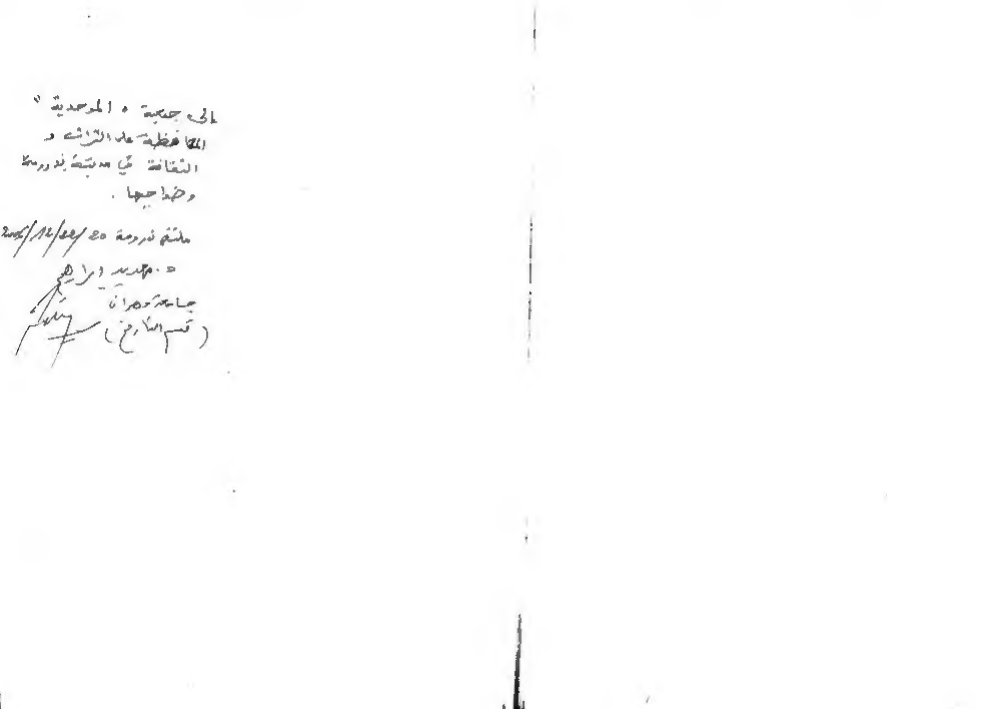 إلى جمعية " الموحدية "
المحافظة على التراث و
الثقافة في مدينة ندرومة
وضواحيها .
ملتقى ندرومة 20/22/12/
د. مهديد إبراهيم
جامعة وهران
( قسم التاريخ )